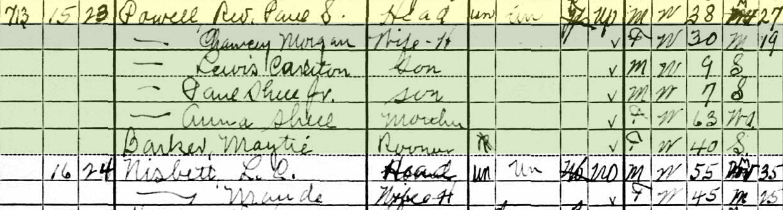 713 15 23 Powell Rev. Paul S. Head un un No M W 38 M 27
— Chancey Morgan Wife-H ✓ F W 30 M 19
— Lewis Carlton Son ✓ M W 9 S
— Paul Shell Jr. Son ✓ M W 7 S
— Anna Shell Mother ✓ F W 63 Wd
Barker, Maytie Roomer ✓ F W 40 S
16 24 Nisbett L. C. Head un Un No M W 55 M 35
— Maude Wife-H ✓ F W 45 M 25